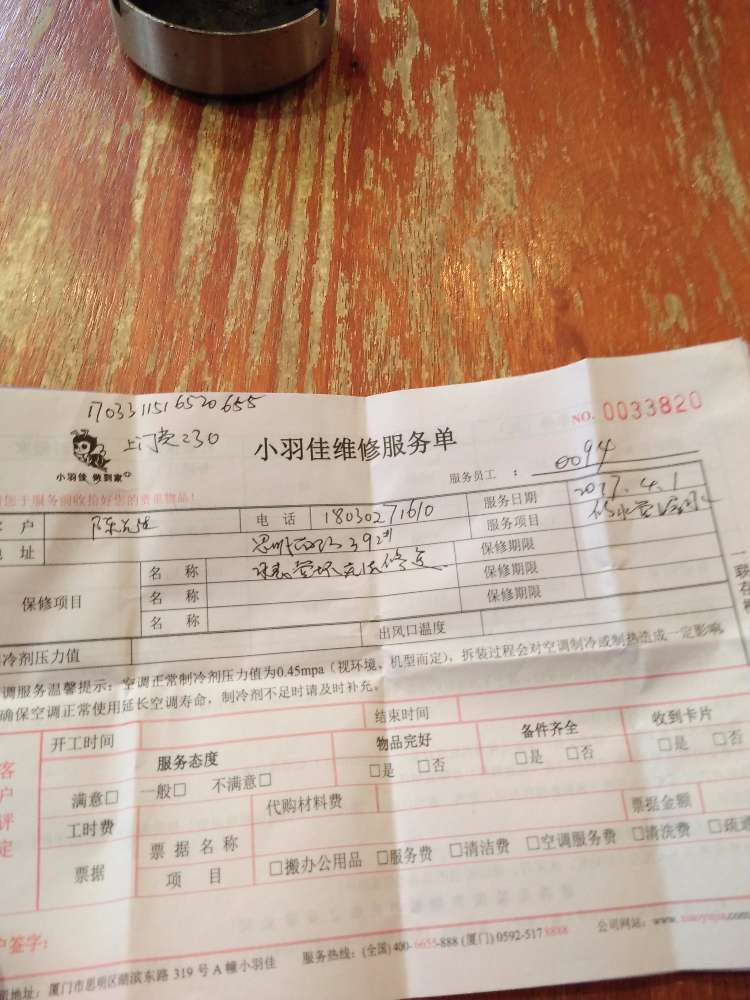 1703311516520655
上门费230
小羽佳 做到家
小羽佳维修服务单
NO. 0033820
服务员工 : 0094
您于服务前收拾好您的贵重物品!
客 户 电 话 18030271610 服务日期 2017.4.1
地 址 服务项目
保修项目 名 称 保修期限
名 称 保修期限
名 称 保修期限
冷剂压力值 出风口温度
调服务温馨提示：空调正常制冷剂压力值为0.45mpa（视环境，机型而定），拆装过程会对空调制冷或制热造成一定影响
确保空调正常使用延长空调寿命，制冷剂不足时请及时补充。
开工时间 结束时间
客户评定 服务态度 物品完好 备件齐全 收到卡片
满意□ 一般□ 不满意□ □是 □否 □是 □否 □是 □否
工时费 代购材料费 票据金额
票据 票据名称
项 目 □搬办公用品 □服务费 □清洁费 □空调服务费 □清洗费 □疏通
户签字：
地址：厦门市思明区湖滨东路 319 号 A 幢小羽佳 服务热线：(全国) 400-6655-888 (厦门) 0592-5178888 公司网站：www.xiaoyujia.com